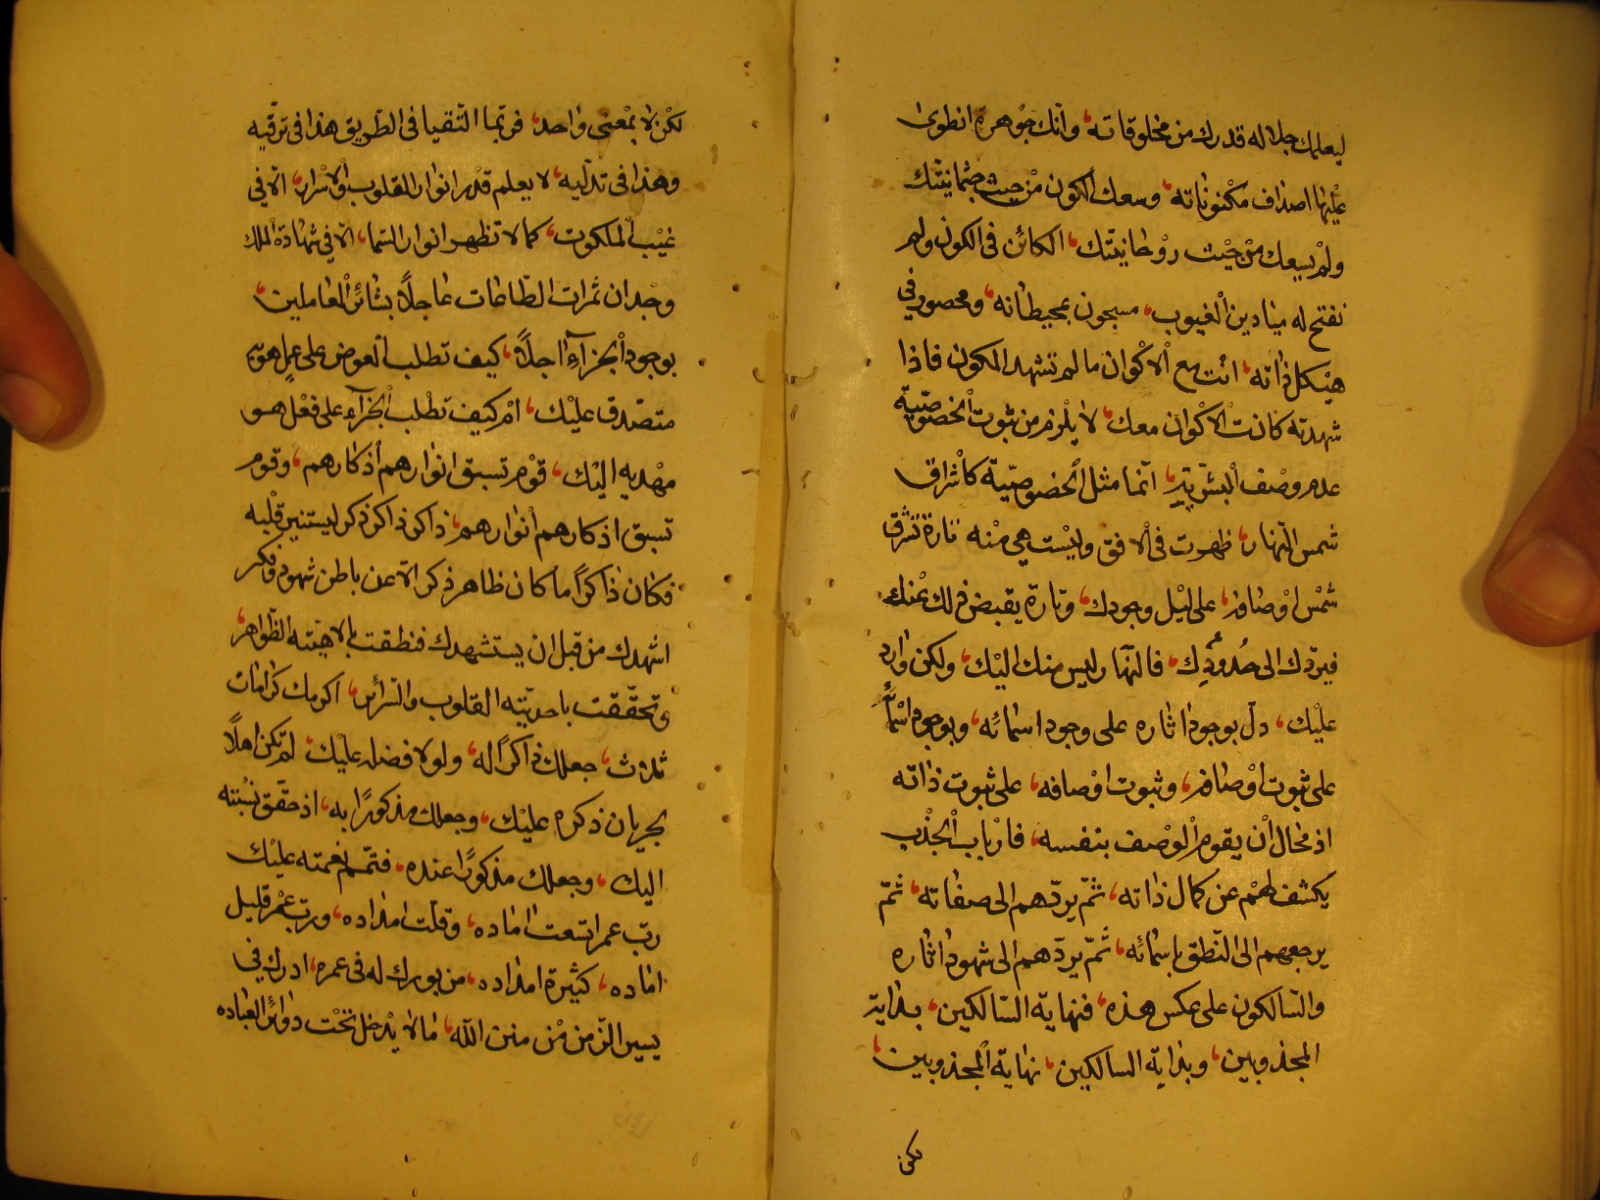 ليعلمك جلالة قدرك من مخلوقاته، وانك جوهرة انطوى
عليها اصداف مكنوناته، وسعك الكون من حيث جثمانيتك
ولم يسعك من حيث روحانيتك، الكائن فى الكون ولم
تفتح له ميادين الغيوب، مسجون بمحيطاته، ومحصور في
هيكل ذاته، انت مع الاكوان ما لم تشهد المكون فاذا
شهدته كانت الاكوان معك، لا يلزم من ثبوت الخصوصيّة
عدم وصف البشريّة، انّما مثل الخصوصيّة كاشراق
شمس النّهار، ظهرت فى الافق وليست هي منه تارة تشرق
شمس اوصافه، على ليل وجودك، وتارة يقبض ذلك عنك
فيردّك الى حدودك، فالنهار ليس منك اليك، ولكن وارد
عليك، دلّ بوجود اثاره على وجود اسمائه، وبوجود اسمائه
على ثبوت اوصافه، وثبوت اوصافه، على ثبوت ذاته
اذ محال ان يقوم الوصف بنفسه، فارباب الجذب
يكشف لهم عن كمال ذاته، ثمّ يردّهم الى صفاته، ثمّ
يرجعهم الى النّطق باسمائه، ثمّ يردّهم الى شهود اثاره
والسّالكون على عكس هذه، فنهاية السّالكين، بداية
المجذوبين، وبداية السالكين، نهاية المجذوبين،
لكن
لكن لا بمعنى واحد، فربّما التقيا فى الطّريق هذا فى ترقّيه
وهذا فى تدلّيه، لا يعلم قدر انوار القلوب والاسرار، الّا في
غيب الملكوت، كما لا تظهر انوار السّما، الّا في شهادة الملك
وجدان ثمرات الطّاعات عاجلًا بشائر العاملين،
بوجود الجزآء اجلًا، كيف تطلب العوض على عمل هو
متصّدق عليك، ام كيف تطلب الجزآء على فعل هو
مهديه اليك، قوم تسبق انوارهم اذكارهم، وقوم
تسبق اذكارهم انوارهم، ذاكر ذاكر ذكر ليستنير قلبه
فكان ذاكرًا ما كان ظاهر ذكر الّا عن باطن شهود وفكر
اشهدك من قبل ان يستشهدك فنطقت بالاهيّته الظّواهر،
وتحقّقت باحديّته القلوب والسّرائر، اكرمك كرامات
ثلاث، جعلك ذاكرًا له، ولولا فضله عليك، لم تكن اهلًا
لجريان ذكره عليك، وجعلك مذكورًا به، اذ حقّق نسبته
اليك، وجعلك مذكورًا عنده، فتمّم نعمته عليك
ربّ عمر اتسعت اماده، وقلّت امداده، وربّ عمر قليل
اماده، كثيرة امداده، من بورك له فى عمره، ادرك في
يسير الزّمن من منن اللّه، ما لا يدخل تحت دوائر العباده